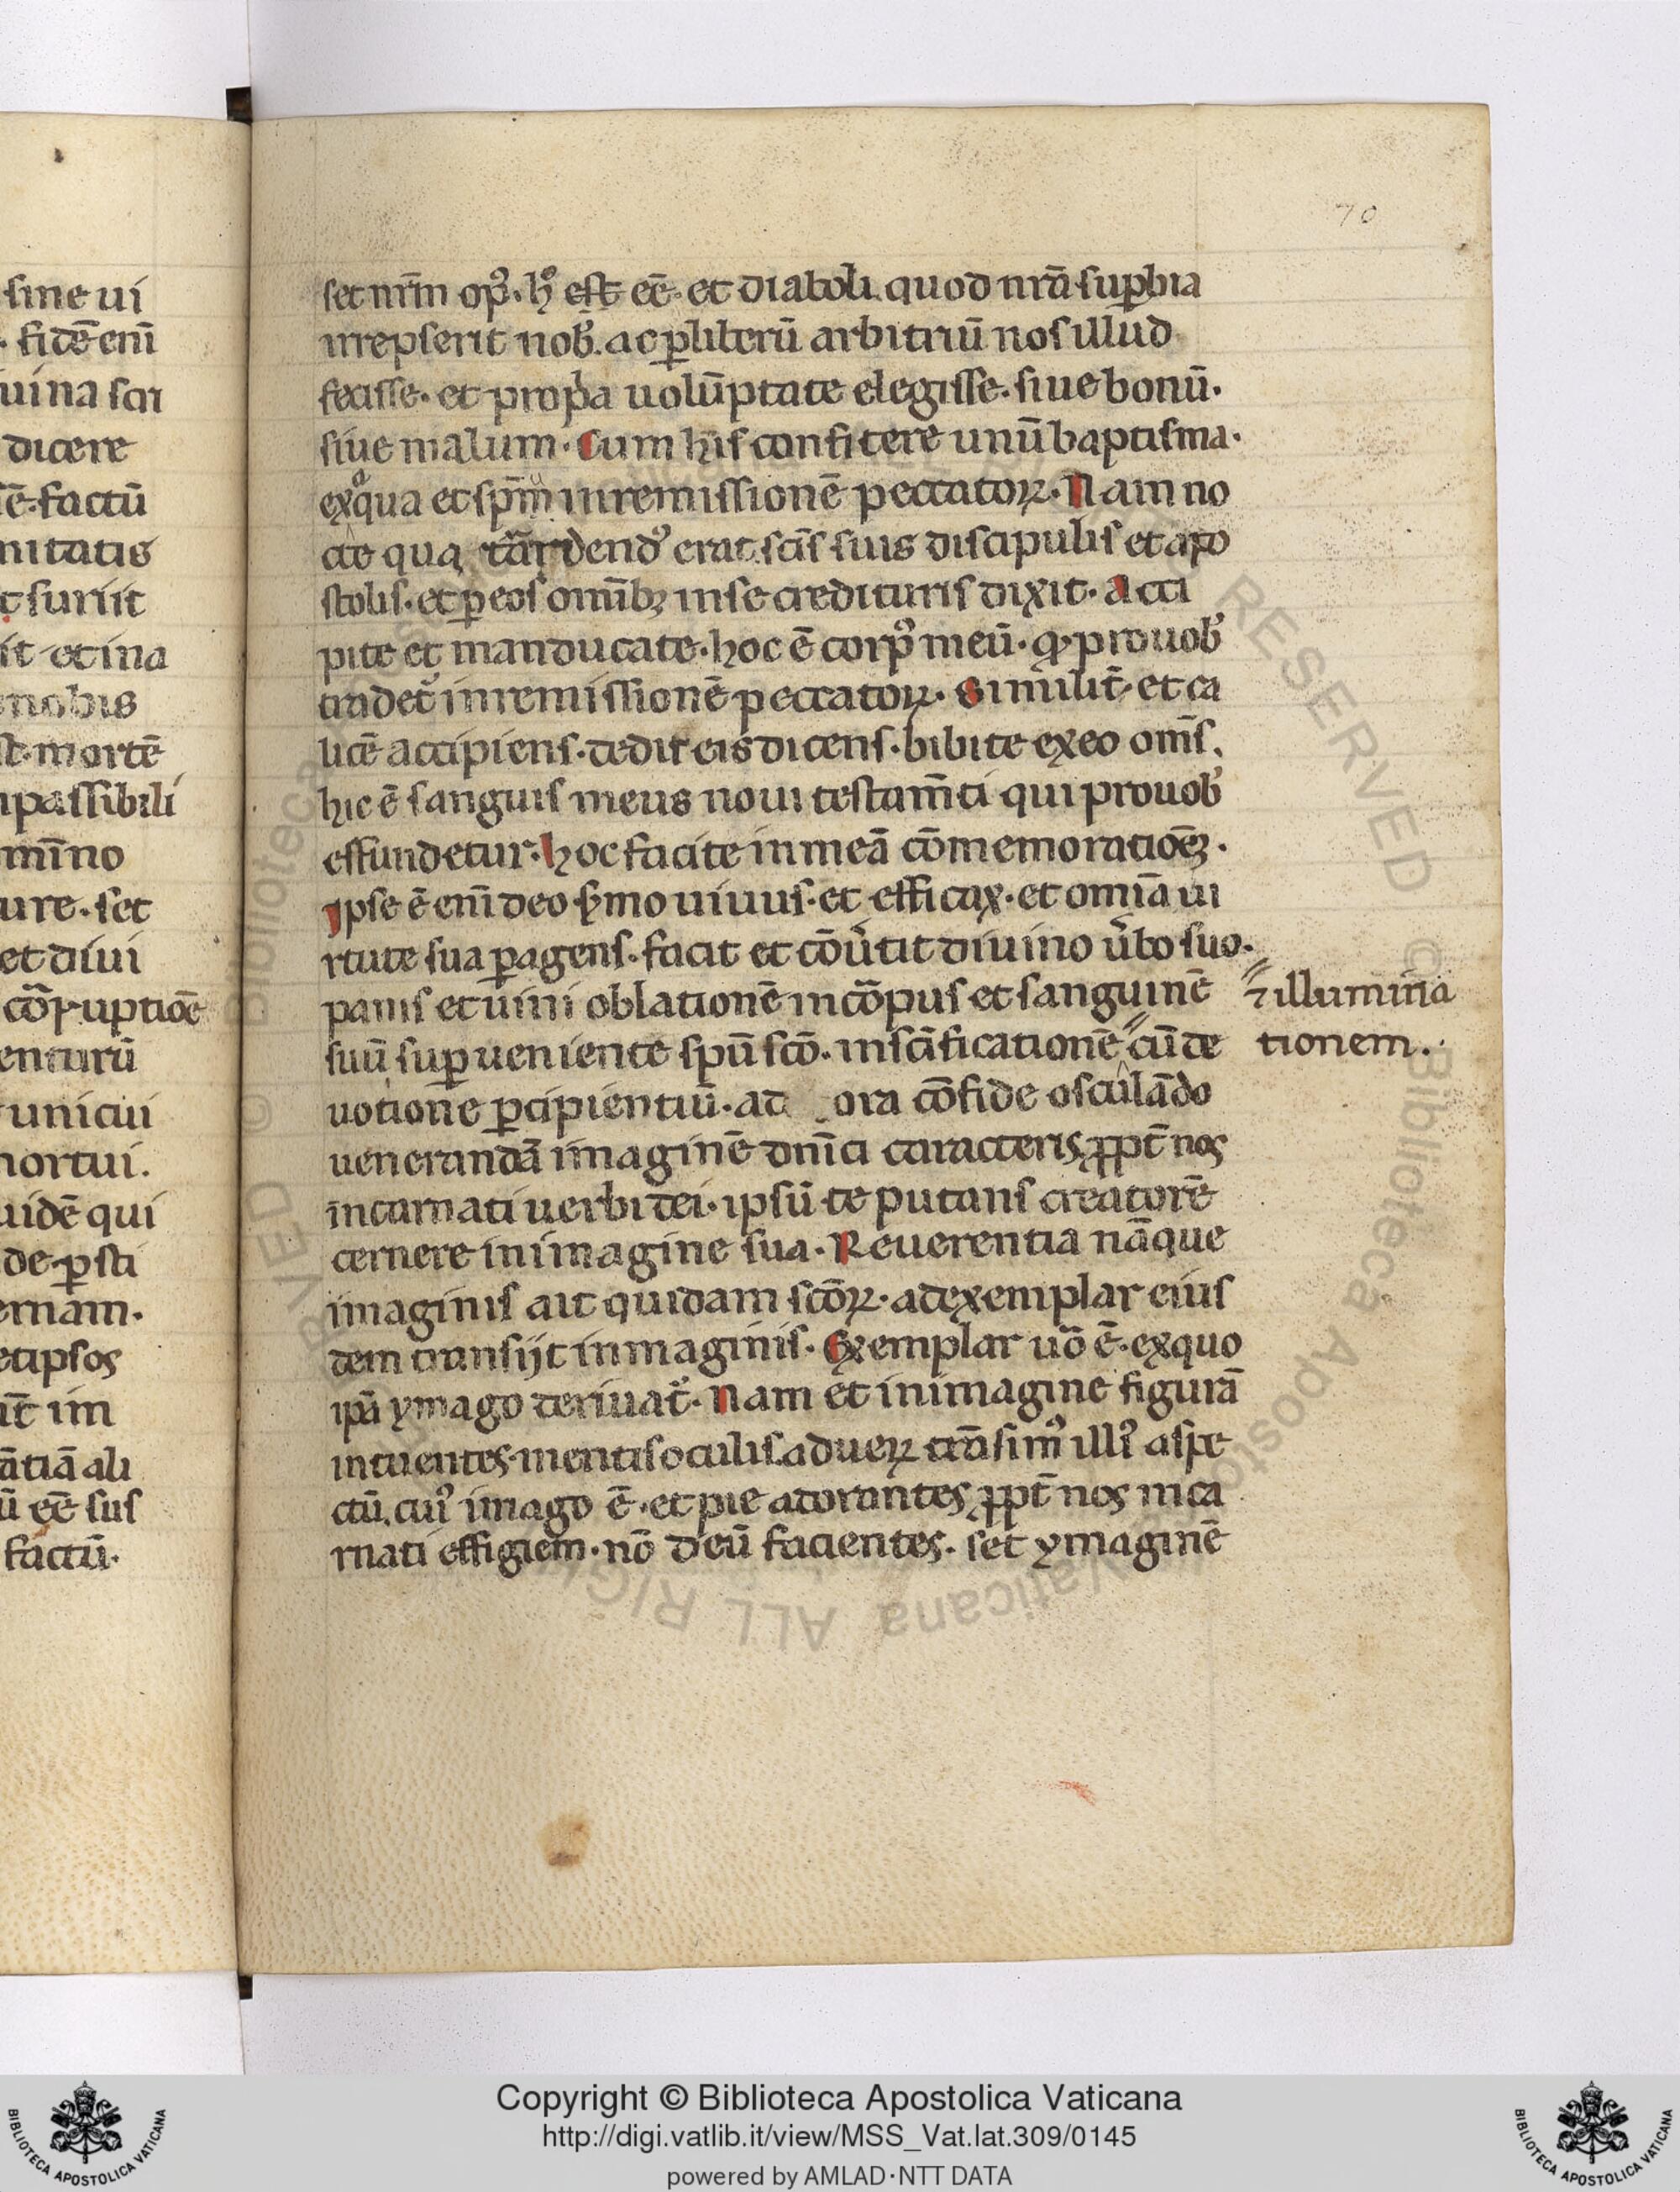 70
sine ui
fidē enī
uina sci
dicere
ē. factū
nitatis
t suriit
it et ina
nobis
mortē
passibili
mīno
ure. set
et diui
cōruptiōe
enturū
unicui
mortui.
uidē qui
de. p̱sti
ernam.
etipsos
īt im
ātiā ali
ū eē sus
factū.
set nr̄m op̾. h̊ est eē. et diaboli. quod nrā sup̱bia
irrepserit nob̾. ac p̱ liberū arbitriū nos illud
fecisse. et propͥa uolūptate elegisse. siue bonū.
siue malum. Cum his confitere unū baptisma.
ex aqua et sp̄m in remissionē peccatoꝝ. Nam no
cte qua tͣdend̾ erat. scīs suis discipulis et apo
stolis. et p̱ eos omībꝫ in se credituris dixit. Acci
pite et manducate. hoc ē corp̾ meū. qͩ pro uob̾
tradet̾ in remissionē peccatoꝝ. Similit̄. et ca
licē accipiens. dedit eis dicens. bibite ex eo om̄s.
hic ē sanguis meus noui testam̄ti qui pro uob̾
effundetur. hoc facite in meā cōmemoratiōeꝫ.
Ipse ē enī deo s̾mo uiuus. et efficax. et omīa ui
rtute sua p̱agens. facit et cōu̾tit diuino u̾bo suo.
panis et uini oblationē in cōpus et sanguinē
suū sup̱ueniente spū scō. in scīficationē cū de
uotione p̱cipientiū. ad ora cō fide osculādo
uenerandā imaginē dnīci caracteris ꝓpt̄ nos
incarnati uerbi dei. ipsū te putans creatorē
cernere in imagine sua. Reuerentia nāque
imaginis ait quidam scōꝝ. ad exemplar eius
dem transijt inmaginis. Exemplar uō ē. ex quo
ipā ymago deriuat̾. Nam et in imagine figurā
intuentes. mentis oculis. ad ueꝝ trāsim̾ illi̾ aspe
ctū. cui̾ imago ē. et pie adorantes ꝓpt̄ nos inca
rnati effigiem. nō deū facientes. set ymaginē
⁊ illumina
tionem.
© Biblioteca Apostolica Vaticana ALL RIGHTS RESERVED
BIBLIOTECA APOSTOLICA VATICANA
Copyright © Biblioteca Apostolica Vaticana
http://digi.vatlib.it/view/MSS_Vat.lat.309/0145
powered by AMLAD·NTT DATA
BIBLIOTECA APOSTOLICA VATICANA